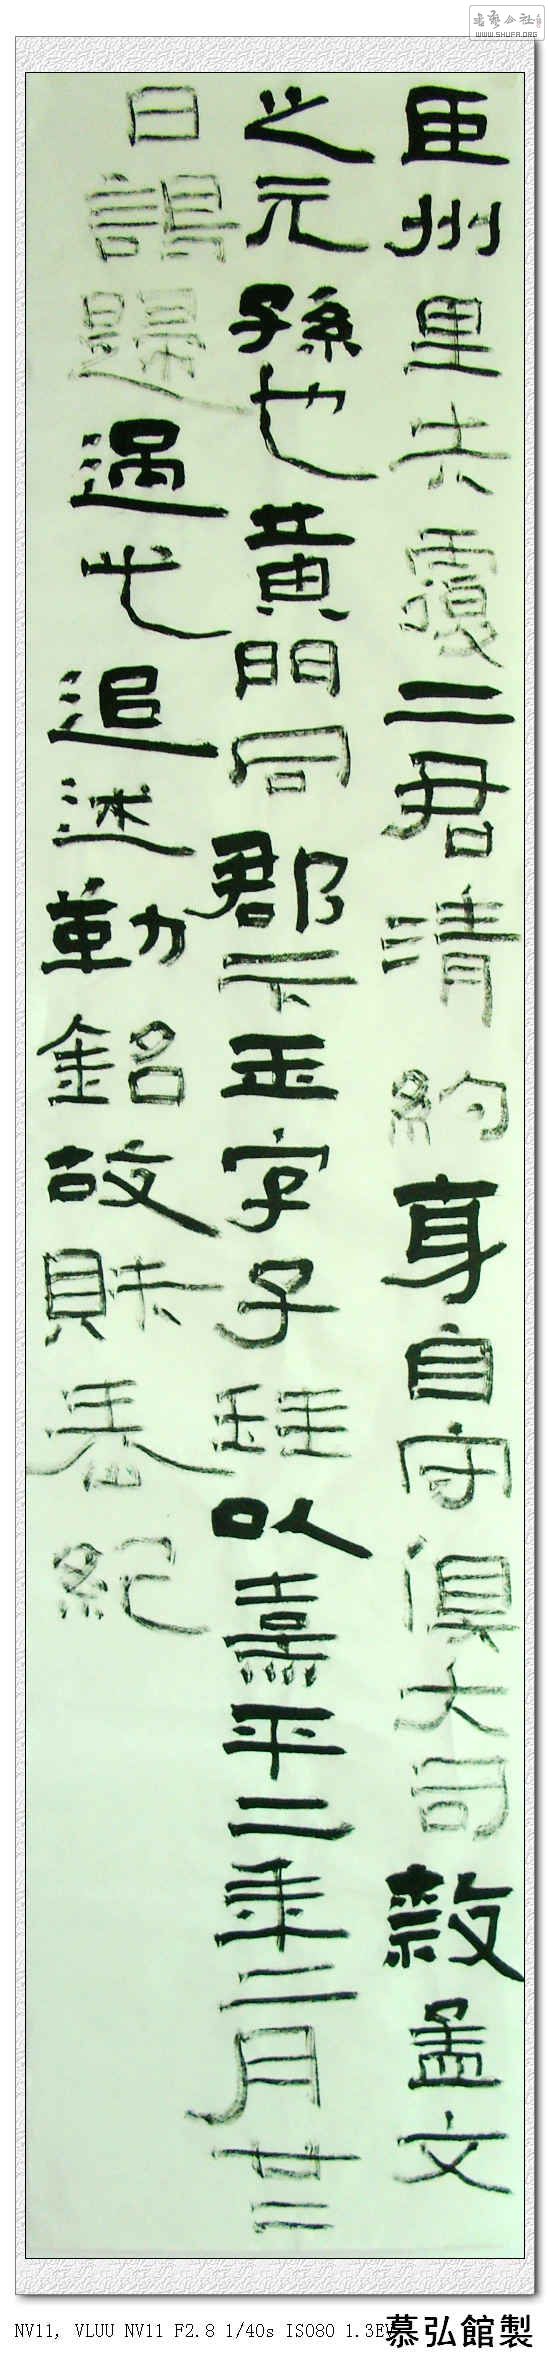 臣州里失覆二君清約身自守俱大司敠孟文
之元孫也黃門同郡卞玉字子珪以熹平二年二月廿二
日謁歸過此追述勒銘故財表紀
書藝公社
WWW.SHUFA.ORG
NV11, VLUU NV11 F2.8 1/40s ISO80 1.3EV
慕弘館製